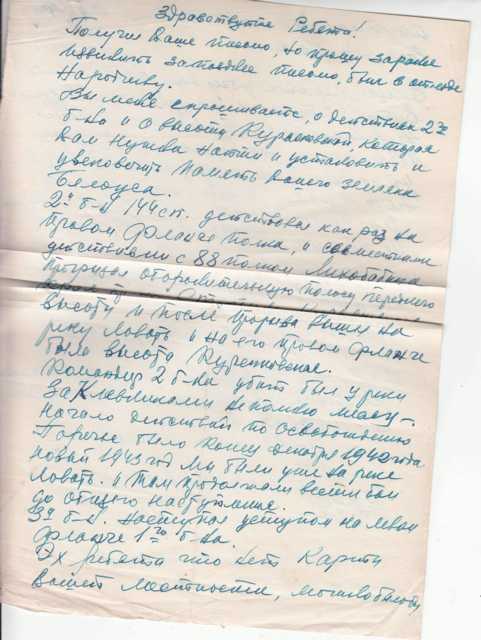 Здравствуйте Ребята!
Получил Ваше письмо, но прошу заранее
извинить за позднее письмо, был в отъезде
Вы меня спрашиваете, о действиях 2го
б-на и о высоте Курженской, которая
Вам нужна найти и установить и
увековечить память Вашего земляка
Белоуса.
2й б-н 144 сп. действовал как раз на
правом фланге полка, и совместными
действиями с 88 полком
прорывая оборонительную полосу переднего
высоту и после прорыва вышли на
реку Ловать и на его правом фланге
была высота Курженская.
Командир 2 б-на убит был у реки
за
Начало действий по освобождению
было конец декабря 1942 года
новый 1943 год мы были уже на реке
Ловать. и там продолжали вести бои
до общего наступления.
3й б-н. наступал уступом на левом
фланге 1го б-на.
Эх ребята что нет карты
Вашей местности, можно было бы